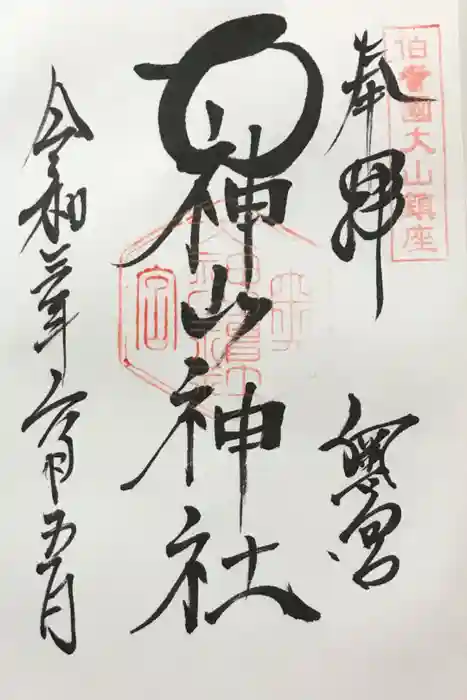 伯耆國大山鎮座
奉拝
奥宮
大神山神社
令和六年六月五日